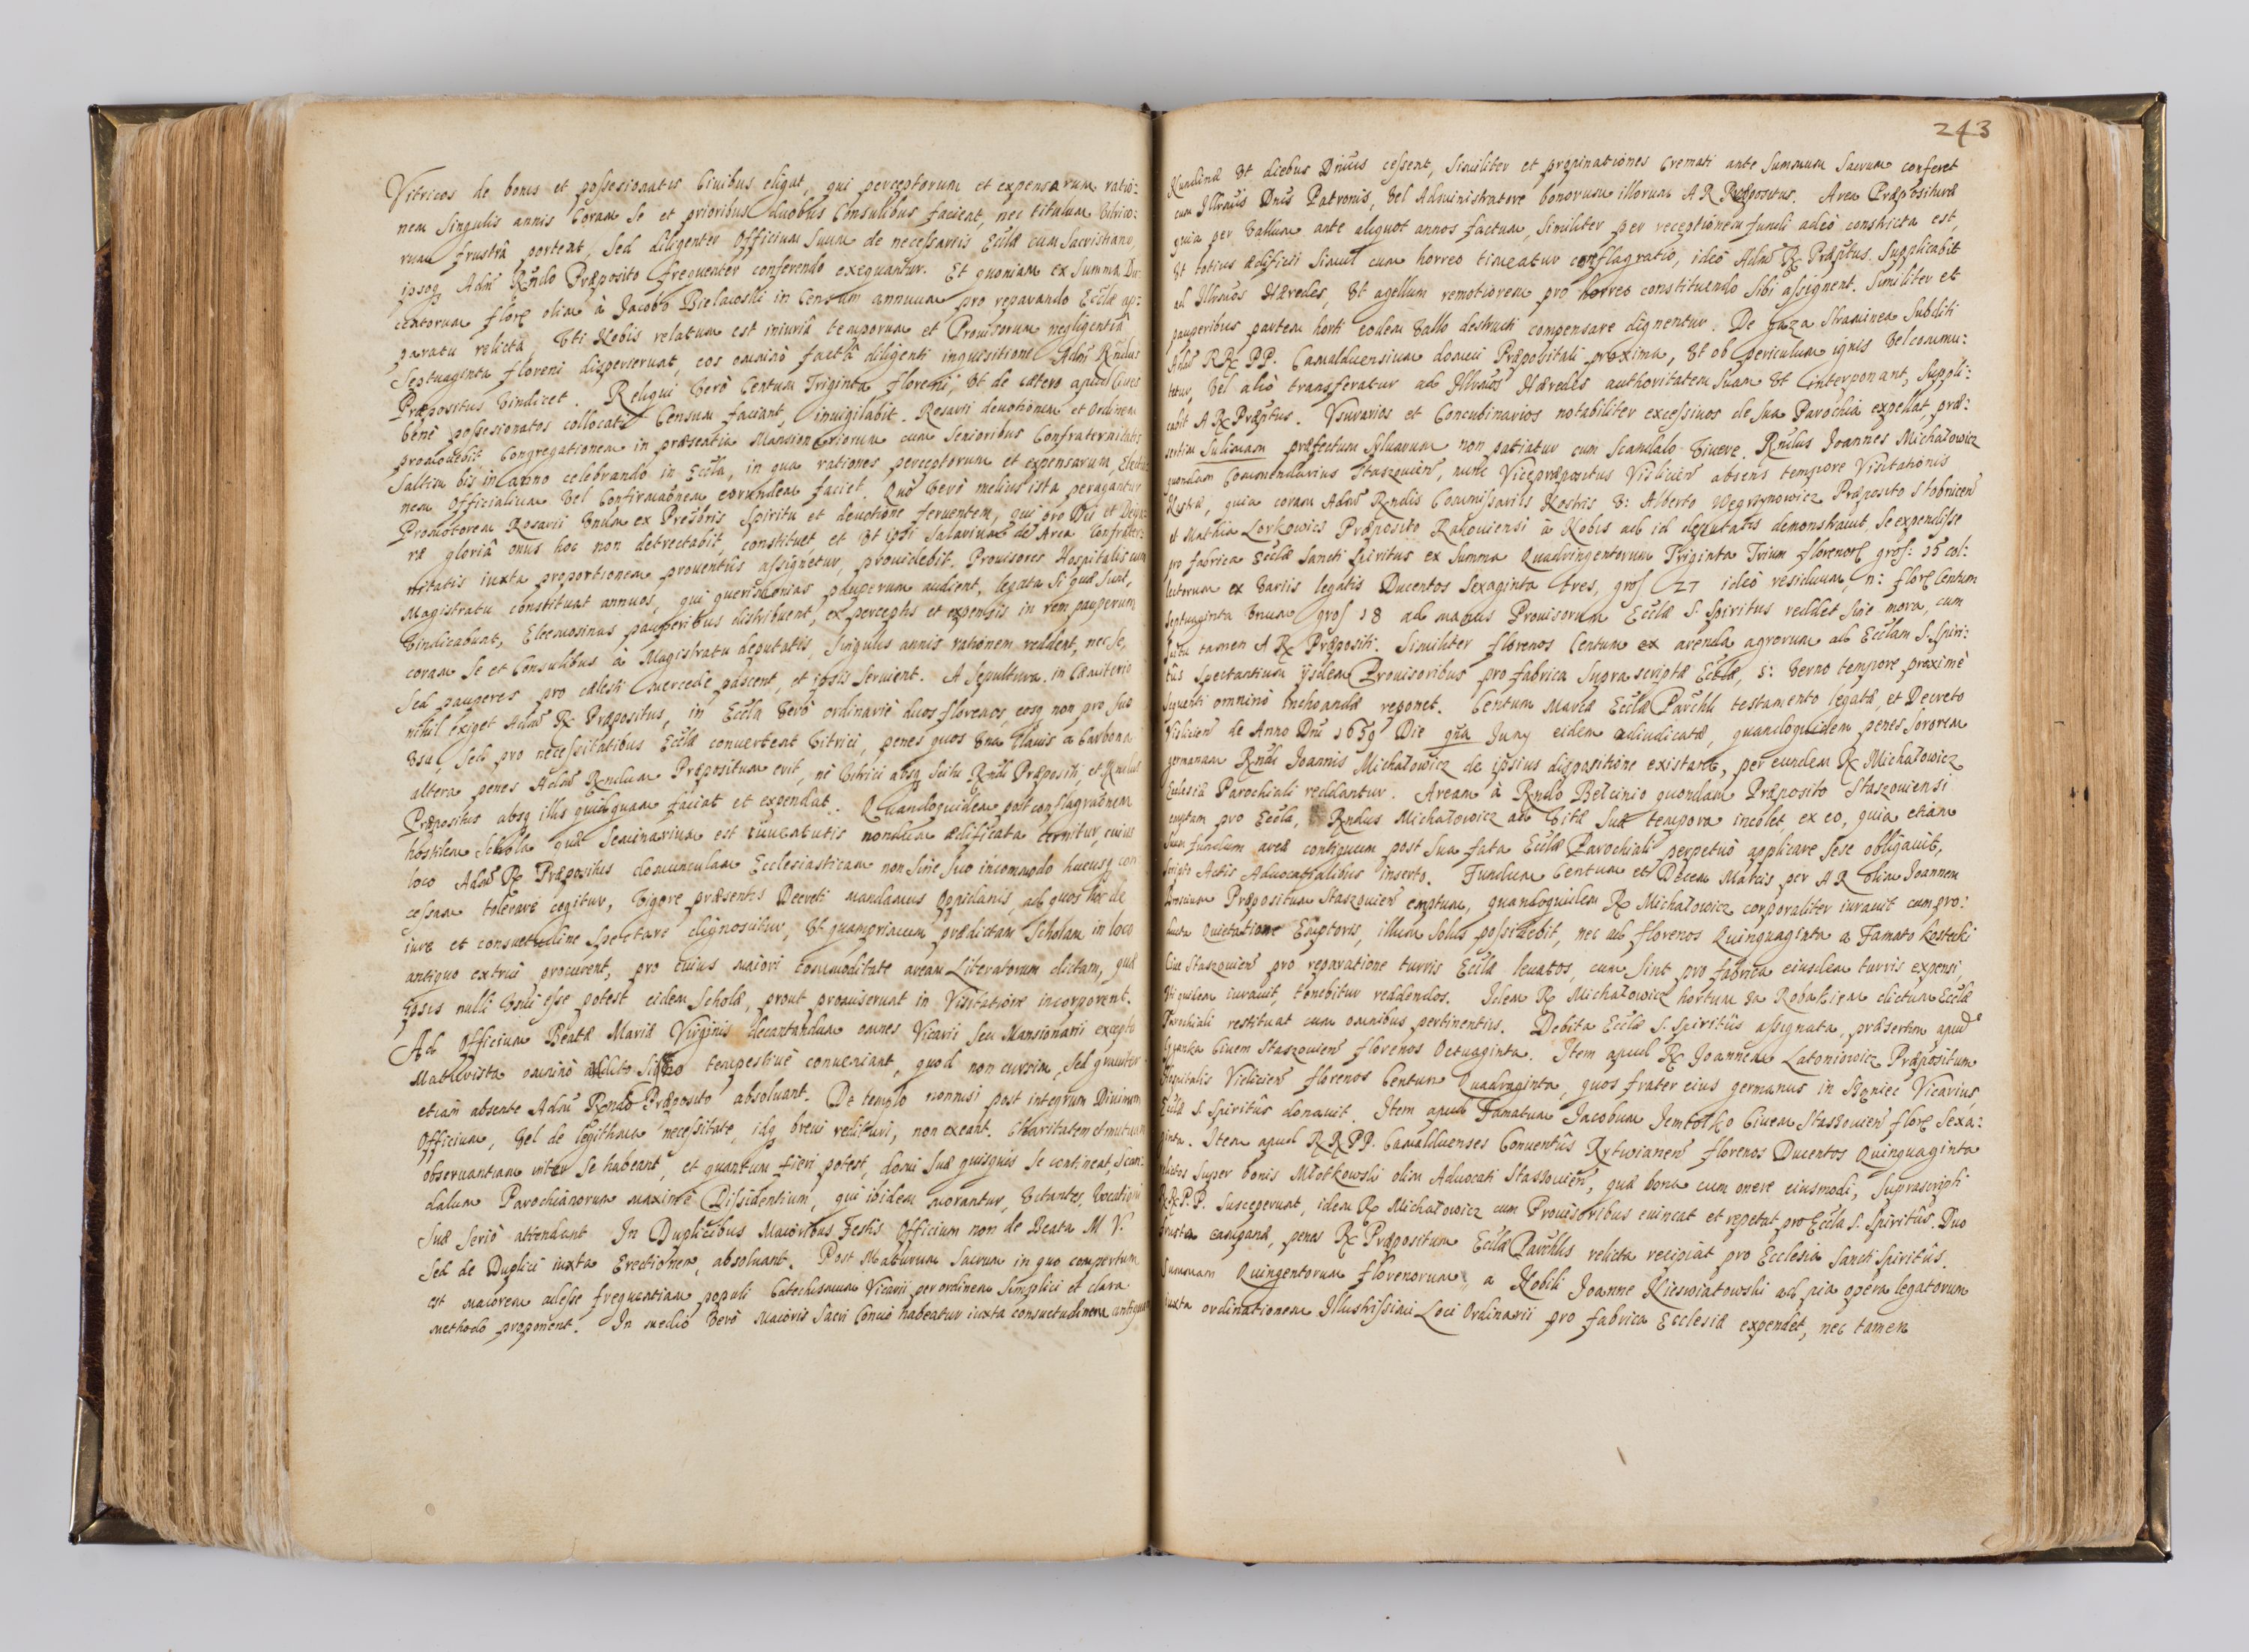 Vitricos de bonis et possesionatis Ciuibus eligat, qui perceptorum et expensarum ratio:
nem singulis annis Coram se et prioribus duobus Consulibus facieat, nec titulum Vitrico:
rum frustrà porteat, sed diligenter Officium suum de necessariis Ecclæ cum Sacristiano,
ipsoq Adm̃ Rñdo Præposito frequenter conferendo exequantur. Et quoniam ex Summa Du:
centorum florę olim à Jacobo Bielawski in Censum annuum pro reparando Ecclæ ap:
paratu relictâ, Vti Nobis relatum est iniuriâ temporum et Prouisorum negligentiâ
Septuaginta floreni disperierunt, eos omninò factâ diligenti inquisitione Adm̃ Rñdus
Præpositus Vindicet. Reliqui Verò Centum Triginta floreni, Vt de cætero apud Ciues
benè possesionatos collocati Censum faciant, inuigilabit. Rosarii deuotionem et Ordinem
promouebit, Congregationem in præsentia Mansionariorum cum Senioribus Confraternitatis
Saltim bis in anno celebrando in Eccla, in qua rationes perceptorum et expensarum, Electio:
nem Officialium Vel Confirmaõnem eorundem faciet. Quò Verò melius ista peragantur
Promotorem Rosarii Vnum ex Presbris spiritu et deuotione feruentem, qui pro Dei et Deipa:
ræ gloriâ onus hoc non detrectabit, constituet et Vt ipsi Salarium de Arca Confrater:
nitatis iuxta proportionem prouentûs assignetur, prouidebit. Prouisores Hospitalis cum
Magistratu constituat annuos, qui querimonias pauperum audient, legata si quæ sunt,
Vindicabunt, Eleemosinas pauperibus distribuent, ex perceptis et expensis in rem pauperum
coram se et Consulibus à Magistratu deputatis, singulis annis rationem reddent, nec se,
sed pauperes pro cælesti mercede pascent, et ipsis seruient. A Sepultura in Cæmiterio
nihil exiget Adm̃ R Præpositus, in Eccla Verò ordinariè duos florenos, eosq non pro suo
Vsu, sed pro necessitatibus Ecclæ conuertent Vitrici, penes quos Vna Clauis a Carbona
altera penes Adm̃ Rndum Præpositum erit, nè Vitrici absq scitu Rndi Præpositi, et Rndus
Præpositus absq illis quidquam faciat et expendat. Quandoquidem post conflagraõnem
hostilem Schola quæ Seminarium est iuuentutis nondum ædificata cernitur, cuius
loco Adm̃ R Præpositus domunculam Ecclesiasticam non sine suo incommodo hucusq con
cessam tolerare cogitur, Vigore præsentis Decreti mandamus Oppidanis, ad quos hoc de
iure et consuetudine spectare dignoscitur, Vt quamprimum prædictam Scholam in loco
antiquo extrui procurent, pro cuius maiori commoditate aream Literatorum dictam, quæ
ipsis nulli Vsui esse potest eidem Scholæ, prout promiserunt in Visitatione incorporent.
Ad Officium Beatæ Mariæ Virginis decantandum omnes Vicarii seu Mansionarii excepto
Maturista omninò audito signo tempestiuè conueniant, quod non cursim, sed grauiter
etiam absente Adm̃ Rndo Præposito absoluant. De templo nonnisi post integrum Diuinum
Officium, Vel de legitima necessitate, idq breui redituri, non exeant. Charitatem et mutuam
obseruantiam inter se habeant, et quantum fieri potest, domi suæ quisquis se contineat, scan:
dalum Parochianorum maximè Dissidentium, qui ibidem morantur, Vitantes, Vocationi
suæ seriò attendant. In Duplicibus Maioribus Festis Officium non de Beata M V.
sed de Duplici iuxta Erectionem, absoluant. Post Maturum Sacrum in quo compertum
est maiorem adesse frequentiam populi Catechismum Vicarii per ordinem simplici et clara
methodo proponent. In medio Verò Maioris Sacri Concio habeatur iuxta consuetudinem antiquam
243
Nundinæ Vt diebus Dñicis cessent, similiter et propinationes Cremati ante Summum Sacrum conferet
cum Illrmis Dnis Patronis, Vel Administratore bonorum illorum A R Præpositus. Area Præposituræ
quia per Vallum ante aliquot annos factum, similiter per receptionem fundi adeò constricta est,
Vt totius ædificii simul cum horreo timeatur conflagratio, ideò Adm̃ R Præptus supplicabit
ad Illrmos Hæredes, Vt agellum remotiorem pro horreo constituendo sibi assignent. Similiter et
pauperibus partem horti eodem Vallo destructi compensare dignentur. De gaza straminea subditi
Adm̃ RR PP. Camaldulensium domui Præpositali proxima, Vt ob periculum ignis Vel commu:
tetur, Vel aliò transferatur ad Illrmos Hæredes authoritatem suam Vt interponant, suppli:
cabit A R Præptus. Vsurarios et Concubinarios notabiliter excessiuos de sua Parochia expellat, præ:
sertim Sulimam præfectum syluarum non patiatur cum scandalo Viuere. Rndus Joannes Michałowicz
quondam Commendarius Staszouien̄, nunc Vicepræpositus Vislicien̄ absens tempore Visitationis
Nostræ, quia coram Adm̃ Rndis Commissariis Nostris V: Alberto Węgrzynowicz Præposito Stobnicen̄
et Mathia Lorkowicz Præposito Rakouiensi à Nobis ad id deputatis demonstrauit, se expendisse
pro fabrica Ecclæ Sancti Spiritus ex Summa Quadringentorum Triginta Trium florenorę gros: 15 col:
lectorum ex Variis legatis Ducentos Sexaginta tres, gros 27 ideò residuum, n: florę Centum
septuaginta Vnum gros 18 ad manus Prouisorum Ecclæ S. Spiritus reddet, sine mora, cum
scitu tamen A R Præpositi. Similiter florenos Centum ex arenda agrorum ad Ecclam S. Spiri:
tûs spectantium ijsdem Prouisoribus pro fabrica supra scriptæ Ecclæ, s: Verno tempore proximè
sequenti omninò inchoandæ reponet. Centum Marcæ Ecclæ Parchli testamento legatæ, et Decreto
Vislicien̄ de Anno Dni 1659 Die 9na Juny eidem adiudicatæ, quandoquidem penes sororem
germanam Rndi Joannis Michałowicz de ipsius dispositione existant, per eundem R Michałowicz
Eclesiæ Parochiali reddantur. Aream à Rndo Belcinio quondam Præposito Staszouiensi
emptam pro Eccla, Rndus Michałowicz ad Vitæ suæ tempora incolet, ex eo, quia etiam
suum fundum areæ contiguum post sua fata Ecclæ Parochiali perpetuò applicare sese obligauit,
scripto Actis Aduocatialibus inserto. Fundum Centum et Decem Marcis per A R olim Joannem
Præpositum Staszouien̄ emptum, quandoquidem R Michałowicz corporaliter iurauit cum pro:
ducta Quietatione Emptoris, illum solus possidebit, nec ad florenos Quinquaginta a Famato Kostecki
Ciue Staszouien̄ pro reparatione turris Ecclæ leuatos, cum sint pro fabrica eiusdem turris expensi,
Vti quidem iurauit, tenebitur reddendos. Idem R Michałowicz hortum Robaksiem dictum Ecclæ
Parochiali restituat cum omnibus pertinentiis. Debita Ecclæ S. Spiritûs assignata, præsertim apud
Ciuem Staszouien̄ florenos Octuaginta. Item apud R Joannem Latoniowicz Præpositum
Hospitalis Vislicien̄ florenos Centum Quadraginta, quos frater eius germanus in Vicarius
Ecclæ S. Spiritûs donauit. Item apud Famatum Jacobum Jemiołko Ciuem Staszouien̄ florę Sexa:
ginta. Item apud RR PP. Camaldulenses Conuentûs Rytwianen̄ florenos Ducentos Quinquaginta
relictos super bonis Młotkowski olim Aduocati Staszouien̄, quæ bona cum onere eiusmodi, suprascripti
RR P.P. susceperunt, idem R Michałowicz cum Prouisoribus euincat et repetat pro Eccla S. Spiritûs. Duo
frusta campanæ, penes R Præpositum Ecclæ Parchlis relicta recipiat pro Ecclesia Sancti Spiritûs.
Summam Quingentorum florenorum, a Nobili Joanne Nieswiatowski ad pia opera legatorum
iuxta ordinationem Illustrissimi Loci Ordinarii pro fabrica Ecclesiæ expendet, nec tamen